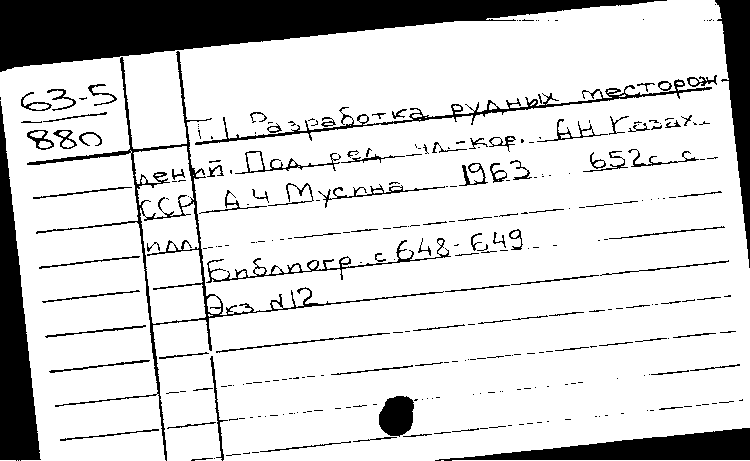 63-5
880
Т.1. Разработка рудных месторож-
дений. Под. ред. чл.-кор. АН Казах.
ССР А.Ч Мусина 1963 652с. с
илл.
Библиогр. с 648-649
Экз N12